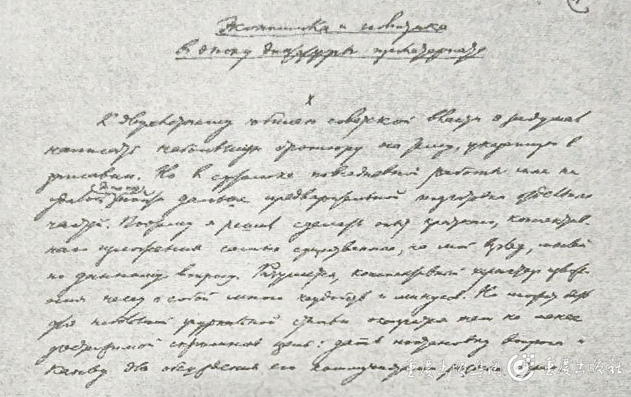 Экономика и политика
в эпоху диктатуры пролетариата
К двухлетнему юбилею советской власти я задумал
написать небольшую брошюру на тему, указанную в
заглавии. Но в сутолоке повседневной работы мне не
дальше предварительной подготовки отдельных
частей. Поэтому я решил сделать опыт краткого, конспектив-
ного изложения самых существенных, на мой взгляд, мыслей
по данному вопросу. Разумеется, конспективный характер изложе-
ния несет с собой много неудобств и минусов. Но может быть
для небольшой журнальной статьи окажется тем не менее
достижимой скромная цель: дать постановку вопроса и
канву для обсуждения его коммунистами разных
重庆出版集团 重庆出版社